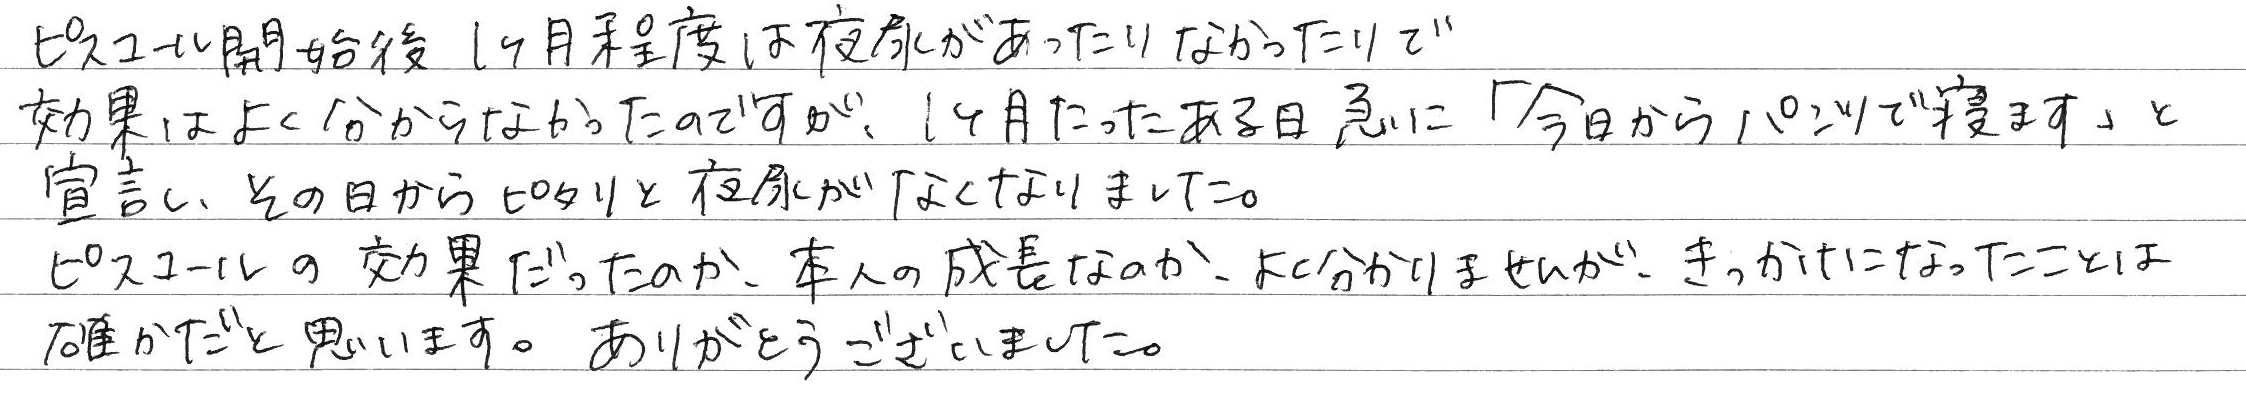 ピスコール開始後 1ヶ月程度は夜尿があったりなかったりで
効果はよく分からなかったのですが、1ヶ月たったある日 急に「今日からパンツで寝ます」と
宣言し、その日からピタリと夜尿がなくなりました。
ピスコールの効果だったのか、本人の成長なのか、よく分かりませんが、きっかけになったことは
確かだと思います。ありがとうございました。